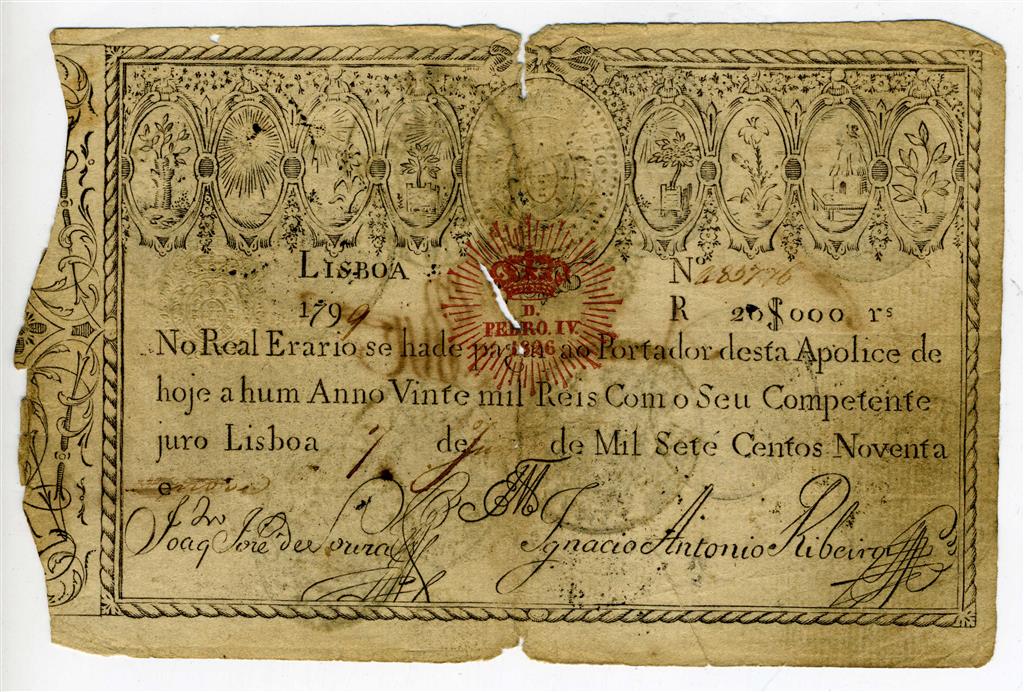 LISBOA
Nº
1799
R 20$000 rs
D.
PEDRO. IV.
1826
No Real Erario se hade pagar ao Portador desta Apolice de
hoje a hum Anno Vinte mil Reis Com o Seu Competente
juro Lisboa 7 de de Mil Sete Centos Noventa
e
Joaq José de Souza
Ignacio Antonio Ribeiro